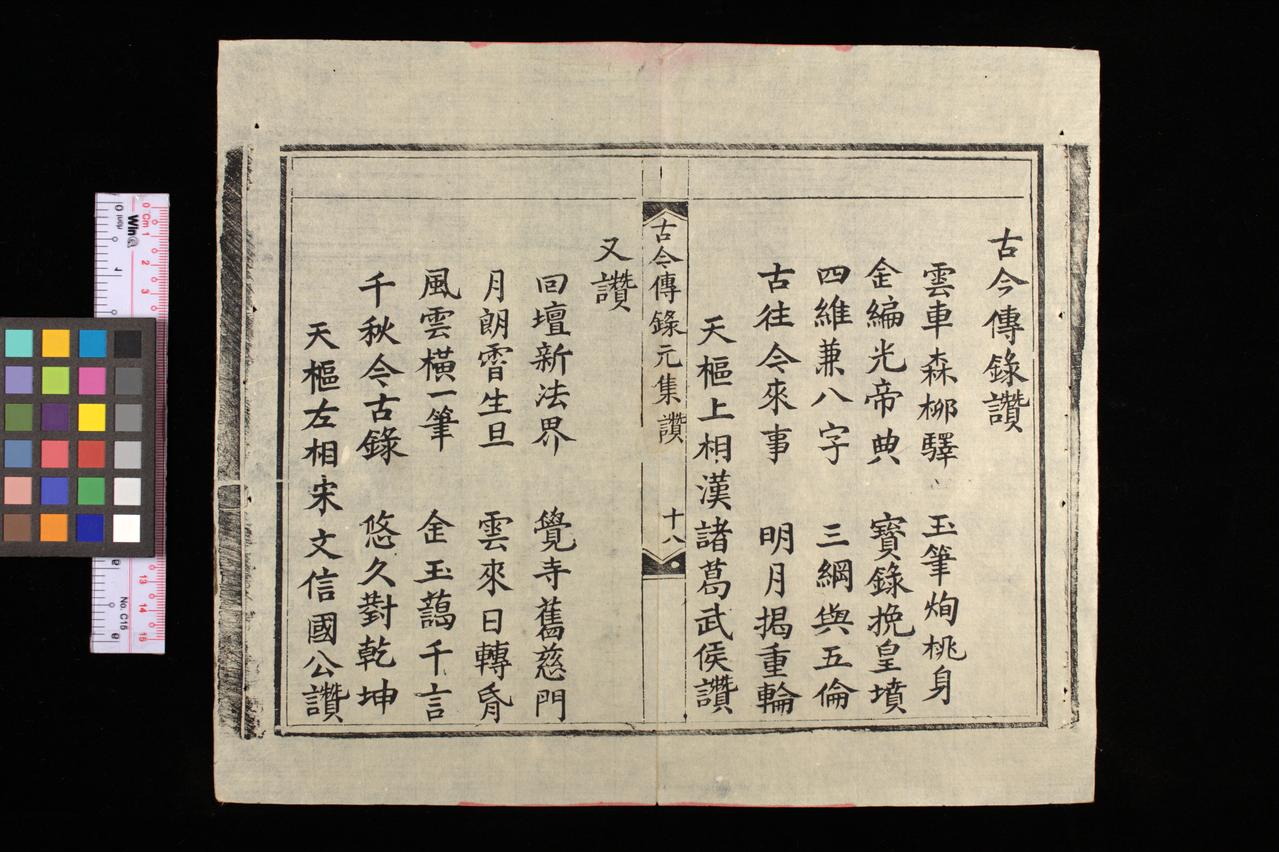 古今傳錄讚
雲車森柳驛 玉筆炯桃身
金編光帝典 寶錄挽皇墳
四維兼八字 三綱與五倫
古往今來事 明月揭重輪
天樞上相漢諸葛武侯讚
古今傳錄元集 讚 十八
又讚
回壇新法界 覺寺舊慈門
月朗霄生旦 雲來日轉昏
風雲橫一筆 金玉藹千言
千秋今古錄 悠久對乾坤
天樞左相宋文信國公讚
0 Cm 1 2 3
13 14 15
Wing
No. C15